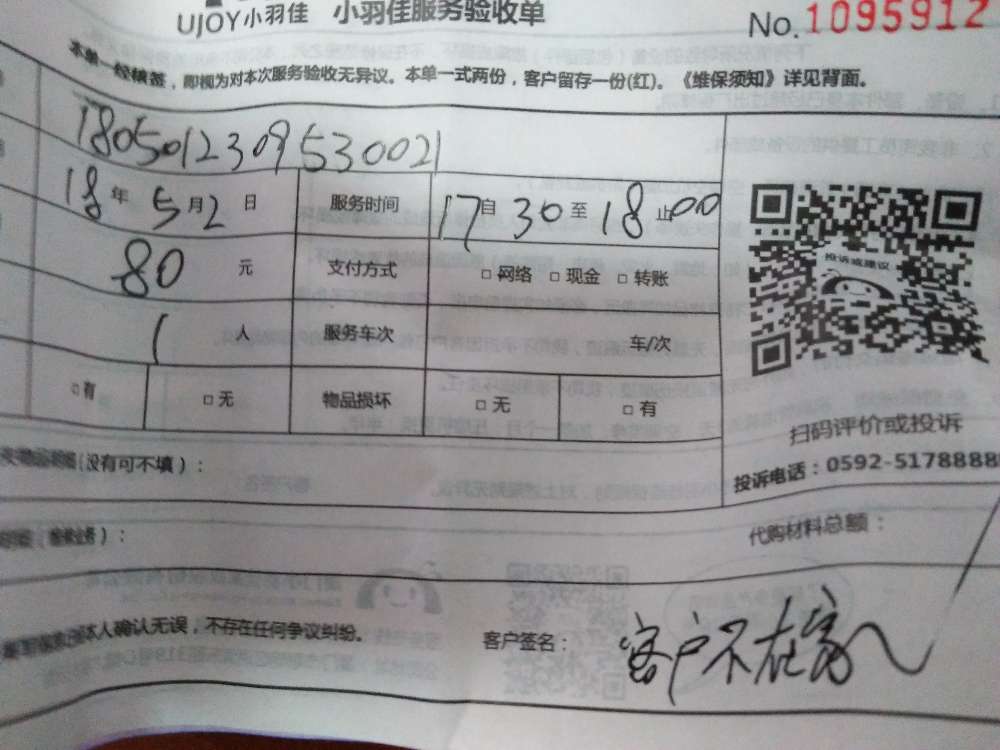 UJOY小羽佳 小羽佳服务验收单
No.1095912
本单一经核签，即视为对本次服务验收无异议。本单一式两份，客户留存一份(红)。《维保须知》详见背面。
1805012309530021
18年5月2日 服务时间 17自30至18止00
80元 支付方式 □网络 □现金 □转账
1人 服务车次 车/次
□有 □无 物品损坏 □无 □有
投诉或建议
扫码评价或投诉
投诉电话：0592-5178888
(没有可不填)：
代购材料总额：
本人确认无误，不存在任何争议纠纷。 客户签名： 客户不在家